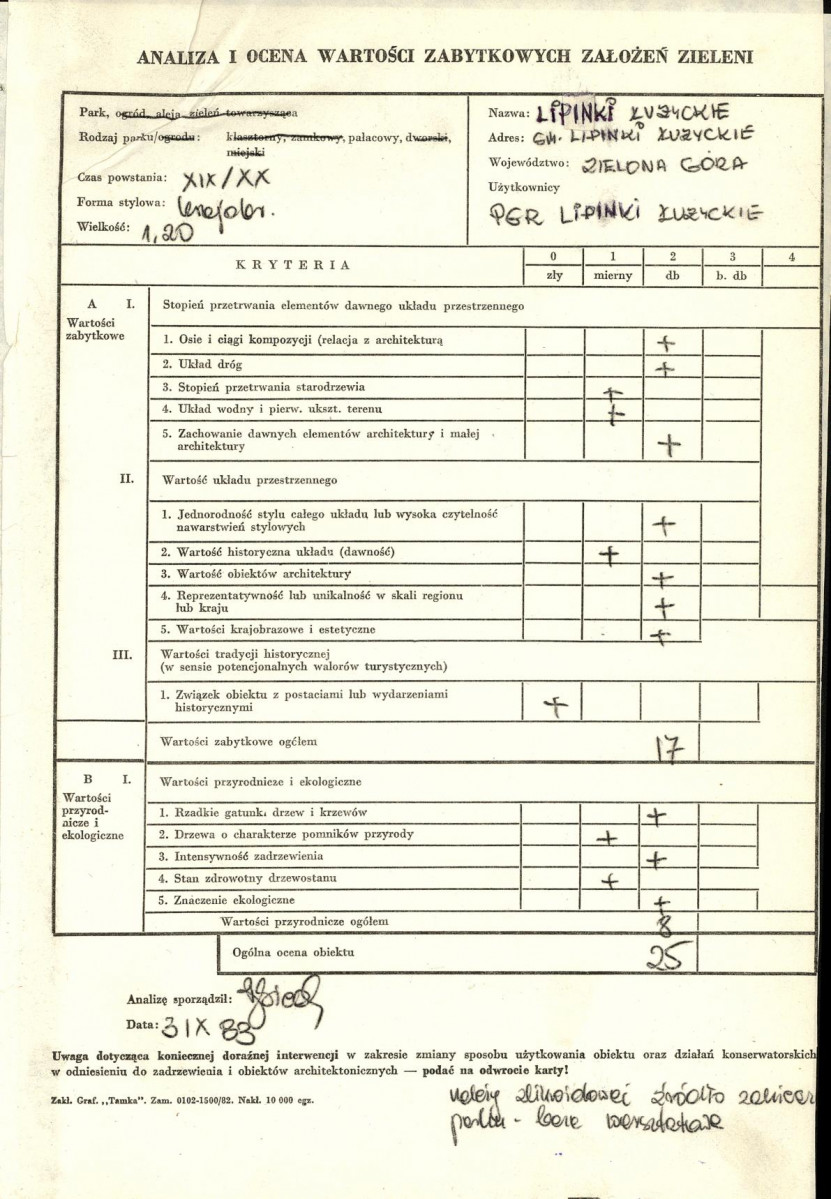 ANALIZA I OCENA WARTOŚCI ZABYTKOWYCH ZAŁOŻEŃ ZIELENI
Park, ogród, aleja, zieleń towarzysząca
Rodzaj parku/ogrodu: klasztorny, zamkowy, pałacowy, dworski,
miejski
Czas powstania: XIX/XX
Forma stylowa: krajobr.
Wielkość: 1,20
Nazwa: LIPINKI ŁUŻYCKIE
Adres: GM. LIPINKI ŁUŻYCKIE
Województwo: ZIELONA GÓRA
Użytkownicy
PGR LIPINKI ŁUŻYCKIE
KRYTERIA
0 1 2 3 4
zły mierny db b. db
A I. Stopień przetrwania elementów dawnego układu przestrzennego
Wartości
zabytkowe
1. Osie i ciągi kompozycji (relacja z architekturą +
2. Układ dróg +
3. Stopień przetrwania starodrzewia +
4. Układ wodny i pierw. ukszt. terenu +
5. Zachowanie dawnych elementów architektury i małej
architektury +
II. Wartość układu przestrzennego
1. Jednorodność stylu całego układu lub wysoka czytelność
nawarstwień stylowych +
2. Wartość historyczna układu (dawność) +
3. Wartość obiektów architektury +
4. Reprezentatywność lub unikalność w skali regionu
lub kraju +
5. Wartości krajobrazowe i estetyczne +
III. Wartości tradycji historycznej
(w sensie potencjonalnych walorów turystycznych)
1. Związek obiektu z postaciami lub wydarzeniami
historycznymi +
Wartości zabytkowe ogółem 17
B I. Wartości przyrodnicze i ekologiczne
Wartości
przyrod-
nicze i
ekologiczne
1. Rzadkie gatunki drzew i krzewów +
2. Drzewa o charakterze pomników przyrody +
3. Intensywność zadrzewienia +
4. Stan zdrowotny drzewostanu +
5. Znaczenie ekologiczne +
Wartości przyrodnicze ogółem 8
Ogólna ocena obiektu 25
Analizę sporządził:
Data: 3 IX 83
Uwaga dotycząca koniecznej doraźnej interwencji w zakresie zmiany sposobu użytkowania obiektu oraz działań konserwatorskich
w odniesieniu do zadrzewienia i obiektów architektonicznych — podać na odwrocie karty!
Zakł. Graf. „Tamka". Zam. 0102-1500/82. Nakł. 10 000 egz.
należy zlikwidować źródło
parku - warsztatowe